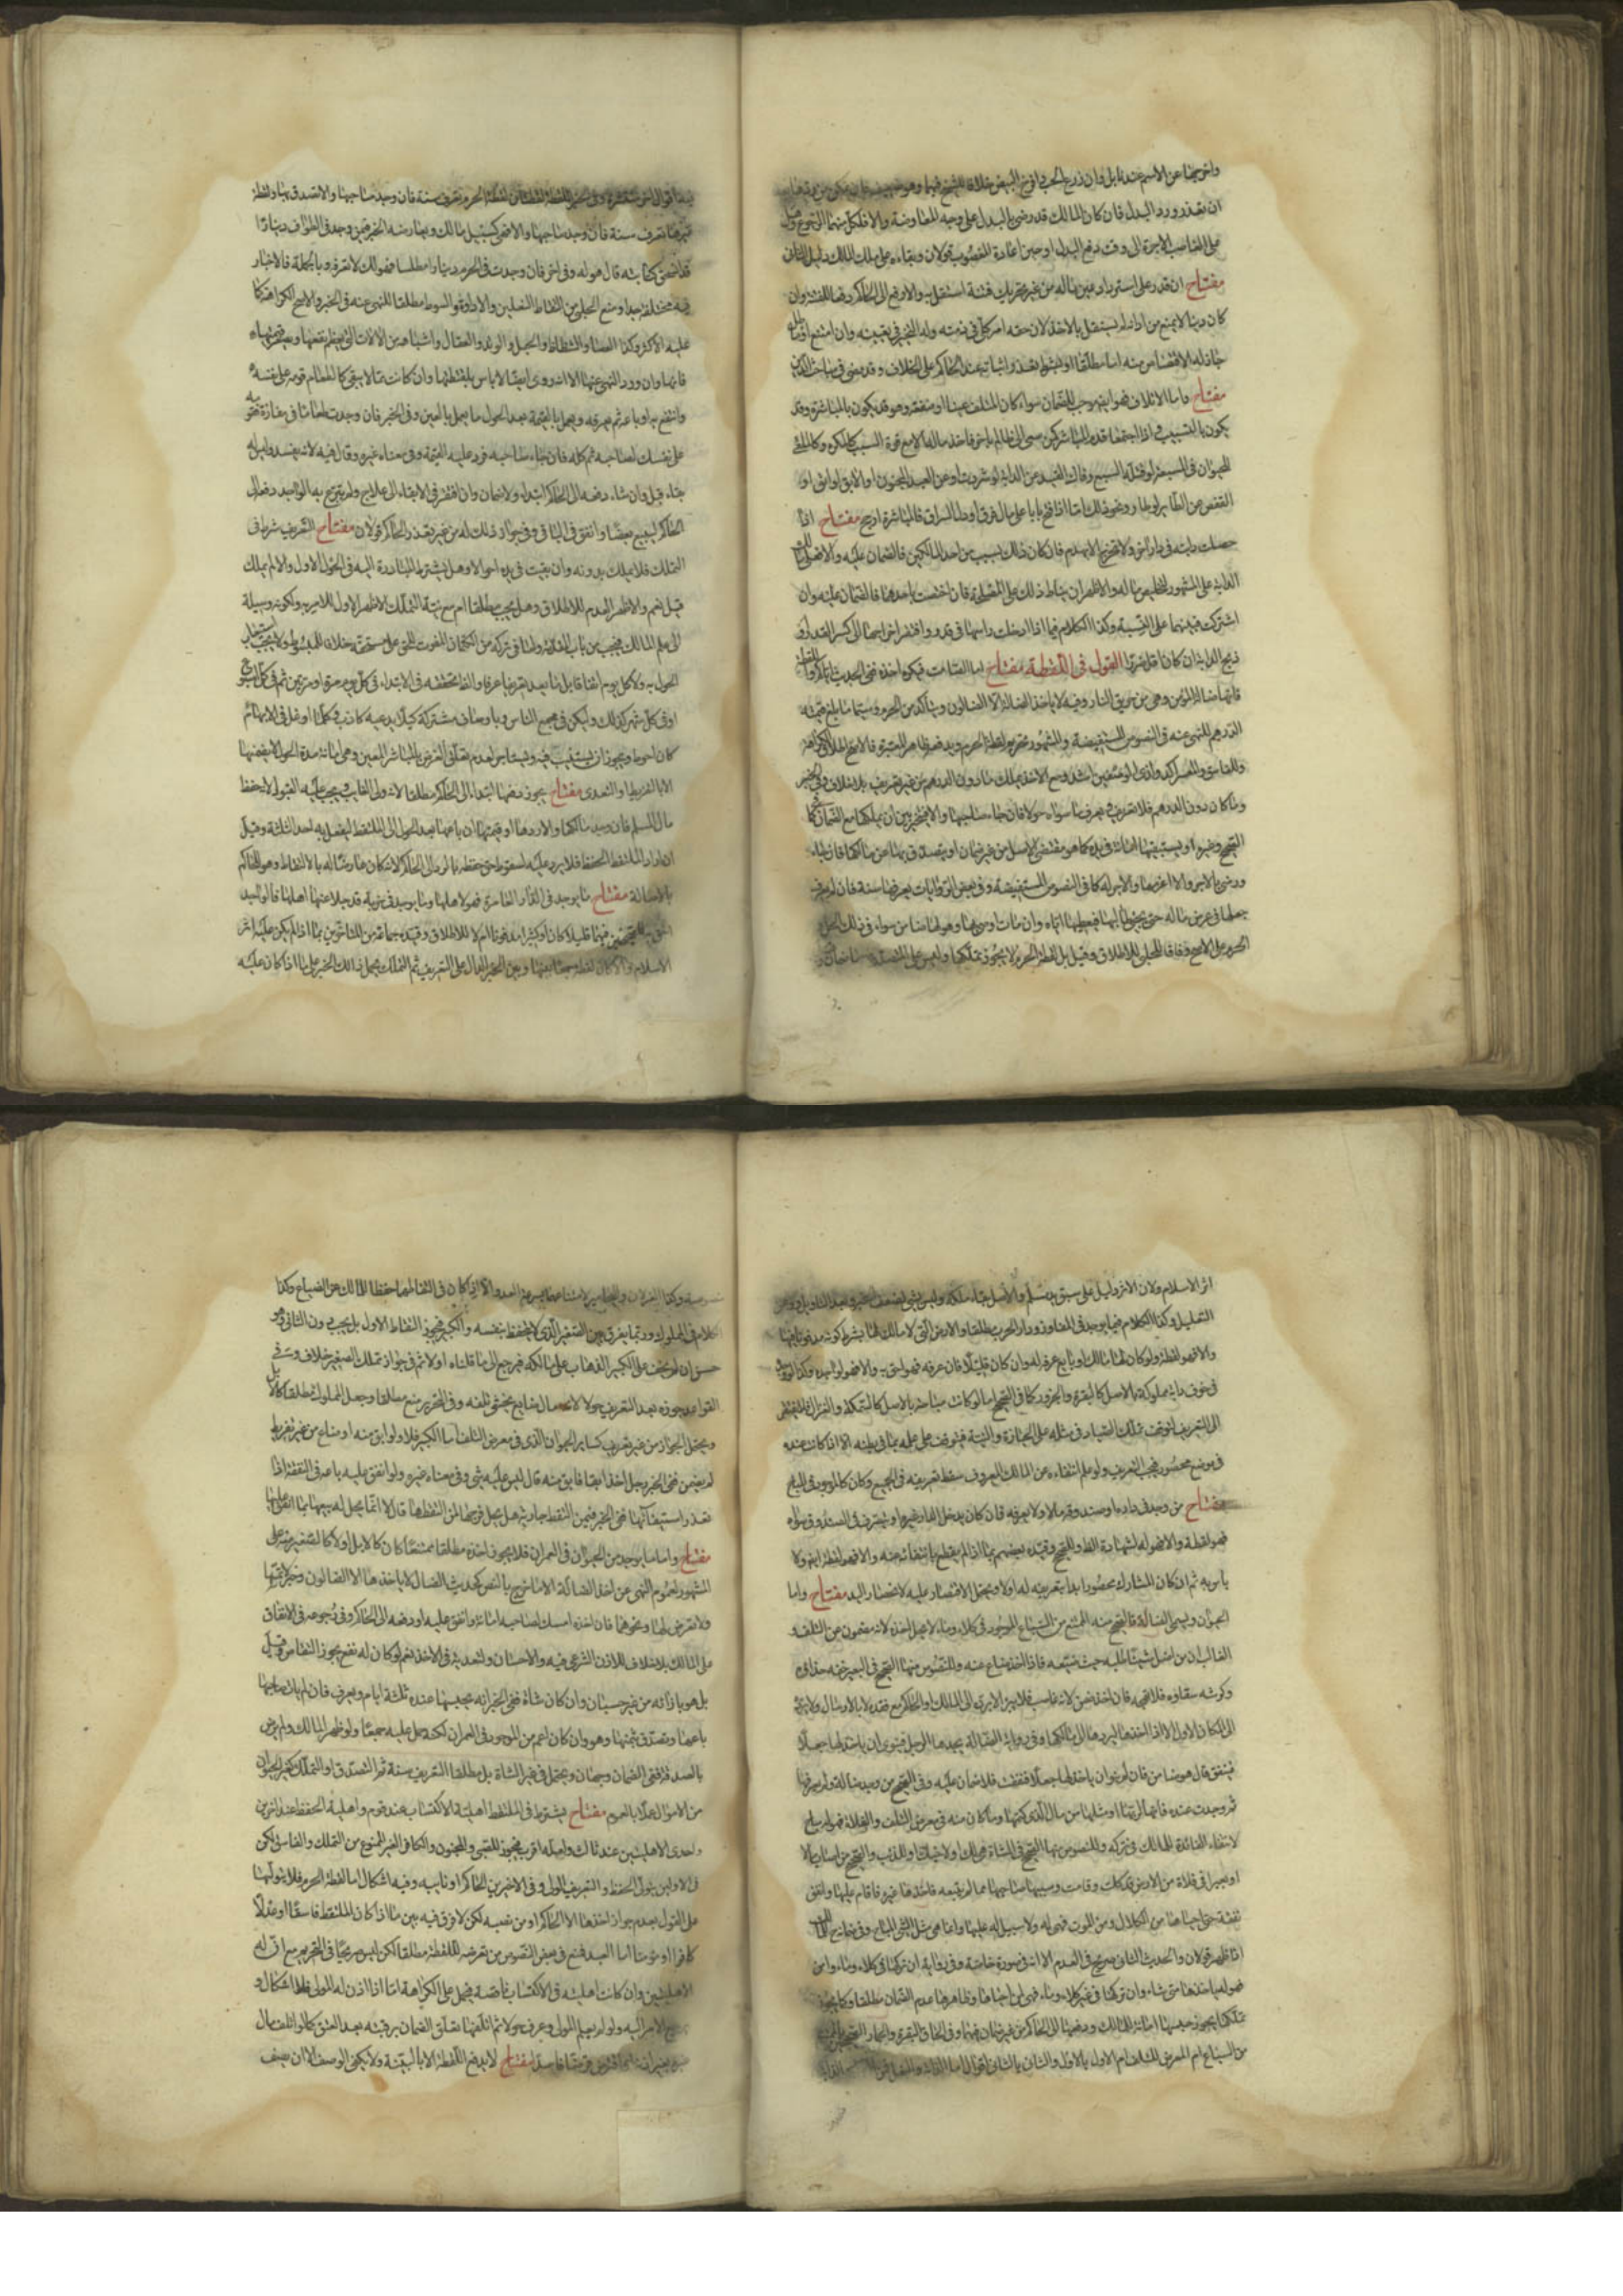 ان تعذر ورد البدل فان كان المالك قد رضي بالبدل على وجه المعاوضة والا فلكل منهما الرجوع
على الغاصب الاجرة الى وقت دفع البدل او حين اعادة المغصوب قولان وبقاءه على ملك المالك دليل الثاني
مفتاح ان قدر على استرداد عين ماله من غير تحريك فتنة استقل به والا رفع الى الحاكم دفعا للفتنة وان
كان دينا لم يستقل بالاخذ لان حقه امر كلي في ذمته وله التخيير في تعيينه وان امتنع
جاز له الاقتصاص منه اما مطلقا او بشرط تعذر اثباته عند الحاكم على الخلاف وقد مضى في مباحث الدين
مفتاح واما الاتلاف فهو ايضا موجب للضمان سواء كان المتلف عينا او منفعة وهو قد يكون بالمباشرة وقد
يكون بالتسبيب فاذا اجتمعا قدم المباشر كمن سعى الى ظالم باخر فاخذ ماله الا مع قوة السبب كالمكره وكالملقي
للحيوان في المسبعة لو قتله السبع وفاك القيد عن الدابة لو شردت او عن العبد المجنون او الابق لو ابق او
القفص عن الطائر لو طار ونحو ذلك اما اذا فتح بابا على مال فسرق او دل السراق فالمباشر ارجح مفتاح اذا
حصلت دابة في دار لا تخرج الا بهدم فان كان ذلك بسبب من احد المالكين فالضمان عليه والا فعلى
الدابة على المشهور لتخليص ماله والاظهر ان يناط ذلك على المصلحة فان اختصت باحدهما فالضمان عليه وان
اشتركت فبينهما على النسبة وكذا الكلام فيما اذا ادخلت راسها في قدر وافتقر اخراجها الى كسر القدر او
ذبح الدابة ان كانا القول في اللقطة مفتاح اما الصامت فيكره اخذه ففي الحديث اياكم واللقطة
فانها ضالة المؤمن وهي من حريق النار وفيه لا ياخذ الضالة الا الضالون ويتاكد من الحرم وسيما ما بلغ قيمته
الدرهم للنهي عنه في النصوص المستفيضة والمشهور تحريم لقطة الحرم
وللفاسق والمعسر اكد واذى الوصفين اشد ومع الاخذ يملك ما دون الدرهم من غير تعريف بلا خلاف وفي الخبر
وما كان دون الدرهم فلا تعريف يعرف ما سواه حولا فان جاء صاحبها والا فيتخير بين ان يملكها مع الضمان
الصحيح وغيره او يستبقيها امانة في يده كما هو مقتضى الاصل من غير ضمان او يتصدق بها عن مالكها فان جاء
ورضي بالاجر والا غرمها والاجر له كما في النصوص المستفيضة وفي بعض الروايات يعرفها سنة فان لم يعرف
جعلها في عرض ماله حتى يجيء طالبها فيعطيها اياه وان مات اوصى بها وهو لها ضامن سواء في ذلك الحل
الحرم على الاصح وفاقا للحلي للاطلاق وقيل بل لقطة الحرم لا يجوز تملكها
غيرها تعرف سنة فان وجدت صاحبها والا فهي كسبيل مالك ويعارضه الخبر فيمن وجد في الطواف دينارا
قد انسحق كتابته قال هو له وفي اخر فان وجدت في الحرم دينارا مطلسا فهو لك لا تعرفه وبالجملة فالاخبار
فيه مختلفة جدا ومنع الحلبي من التقاط النعلين والاداوة والسوط مطلقا للنهي عنه في الخبر والاصح الكراهة كما
عليه الاكثر وكذا العصا والشظاظ والحبل والوتد والعقال واشباهه من الالات التي يعظم نفعها ويصغر ثمنها
فانها وان ورد النهي عنها الا انه روي ايضا لا باس بلقطتها وان كانت مما لا يبقى كالطعام قومه على نفسه
وانتفع به او باعه ثم يعرفه ويعمل بالقيمة بعد الحول ما يعمل بالعين وفي الخبر فان وجدت طعاما في مفازة فقومه
على نفسك لصاحبه ثم كله فان جاء صاحبه فرد عليه القيمة وفي معناه غيره وقال فيه لانه يفسد وليس له
بقاء وقيل وان شاء دفعه الى الحاكم ابتداء ولا ضمان وان افتقر في الابقاء الى علاج ولم يتبرع به الواجد دفع الى
الحاكم ليبيع بعضا وانفق في الباقي وفي جواز ذلك له من غير تعذر الحاكم قولان مفتاح التعريف شرط في
التملك فلا يملك بدونه وان بقيت في يده احوالا وهل يشترط المبادرة اليه في الحول الاول والا لم يملك
قيل نعم والاظهر العدم للاطلاق وهل يجب مطلقا ام مع نية التملك الاظهر الاول للامر به ولكونه وسيلة
الى علم المالك فيجب من باب المقدمة ولما في تركه من الكتمان المفوت للحق على مستحقه خلافا للمبسوط ولا يجب استيعاب
او في كل شهر كذلك وليكن في مجمع الناس وباوصاف مشتركة كيلا يدعيه كاذب وكلما اوغل في الابهام
كان احوط ويجوز ان يستنيب فيه ويستاجر لعدم تعلق الغرض بالمباشر المعين وهي امانة مدة الحول لا يضمنها
الا بالتفريط او التعدي مفتاح يجوز دفعها ابتداء الى الحاكم مطلقا لانه ولي الغايب ويجب عليه القبول لانه حفظ
مال المسلم فان وجد مالكها والا ردها او قيمتها ان باعها بعد الحول الى الملتقط ليفعل به احد الثلثة وقيل
ان اراد الملتقط الحفظ فلا يرد عليه لسقوط حق حفظه بالرد الى الحاكم لانه كان عارضا له بالالتقاط وهو للحاكم
بالاصالة مفتاح ما يوجد في الدار العامرة فهو لاهلها وما يوجد في خربة قد جلا عنها اهلها فالواجد
احق به للصحيحين فيهما قليلا كان او كثيرا مدفونا ام لا للاطلاق وقيده جماعة من المتاخرين بما اذا لم يكن عليه اثر
الاسلام والا كان لقطة جمعا بينهما وبين الخبر الدال على التعريف ثم التملك بحمل ذلك الخبر على ما اذا كان عليه
اثر الاسلام ولان الاثر دليل على سبق يد مسلم والاصل بقاء ملكه وليس بشيء لضعف الخبر
التعليل وكذا الكلام فيما يوجد في المفاوز ودار الحرب مطلقا والارض التي لا مالك لها بشرط كونه مدفونا فيها
والا فهو لقطة ولو كان لها مالك او بايع عرفه له وان كان قليلا فان عرفه فهو احق به والا فهو لواجده وكذا لو وجد
في جوف دابة مملوكة بالاصل كالبقرة والجزور كما في الصحيح اما لو كانت مباحة بالاصل كالسمكة والغزال لم يفتقر
الى التعريف لتوقف تملك الصياد في مثله على الحيازة والنية فيتوقف على علمه بما في بطنه الا اذا كانت عنده
في موضع محصور فيجب التعريف ولو علم انتفاءه عن المالك المعروف سقط تعريفه في الجميع وكان كالموجود في المباح
مفتاح من وجد في داره او صندوقه مالا ولا يعرفه فان كان يدخل الدار غيره او يتصرف في الصندوق سواه
فهو لقطة والا فهو له لشهادة الظاهر وللصحيح وقيده بعضهم بما اذا لم يقطع بانتفائه منه والا فهو لقطة ايضا ولا
باس به ثم ان كان المشارك محصورا بدا بتعريفه له اولا ويحتمل الاقتصار عليه لانحصار اليد مفتاح واما
الحيوان ويسمى الضالة فالصحيح منه الممتنع من السباع الموجود في كلاء وماء لا يحل اخذه لانه مصون عن التلف و
الغالب ان من اضل شيئا طلبه حيث ضيعه فاذا اخذ ضاع عنه وللنصوص منها الصحيح في البعير خفه حذاؤه
وكرشه سقاؤه فلا تهجه فان اخذ ضمن لانه غاصب فلا يبرا الا برده الى المالك او الحاكم مع فقده لا بالارسال ولا برده
الى المكان الاول الا اذا اخذها ليردها الى مالكها وفي رواية الضالة يجدها الرجل فينوي ان ياخذ لها جعلا
فتنفق قال هو ضامن فان لم ينو ان ياخذ لها جعلا فنفقت فلا ضمان عليه وفي الصحيح من وجد ضالة ولم يعرفها
ثم وجدت عنده فانها لربها او مثلها من مال الذي كتمها وما كان منه في معرض التلف والفلاة فهو له مباح
لانتفاء الفائدة للمالك في تركه وللنصوص منها الصحيح في الشاة هي لك او لاخيك او للذئب والصحيح من اصاب مالا
او بعيرا في فلاة من الارض قد كلت وقامت وسيبها صاحبها مما لم يتبعه فاخذها غيره فاقام عليها وانفق
نفقة حتى احياها من الكلال ومن الموت فهي له ولا سبيل له عليها وانما هي مثل الشيء المباح وفي ضمانه
اذا ظهر قولان والحديث الثاني صريح في العدم الا انه في صورة خاصة وفي رواية ان تركها في كلاء وماء وامن
فهو له ياخذها متى شاء وان تركها في غير كلاء وماء فهي لمن احياها وظاهرها عدم الضمان مطلقا وكما يجوز
تملكها يجوز حبسها امانة للمالك ودفعها الى الحاكم من غير ضمان فيهما وفي الحاق البقرة والحمار
كلام في المملوك وربما يفرق بين الصغير الذي لا يتحفظ بنفسه والكبير فيجوز التقاط الاول بل يجب دون الثاني وهو
حسن ان لم يخف على الكبير الذهاب على مالكه فيرجع الى ما قلناه اولا ثم في جواز تملك الصغير خلاف
القواعد جوزه بعد التعريف حولا لانه مال ضايع يخشى تلفه وفي التحرير منع مطلقا وجعل المملوك مطلقا كالمال
ويحتمل الجواز من غير تعريف كساير الحيوان الذي في معرض التلف اما الكبير فلا ولو ابق منه او ضاع من غير تفريط
لم يضمن ففي الخبر رجل اخذ ابقا فابق منه قال ليس عليه شيء وفي معناه غيره ولو انفق عليه باعه في النفقة اذا
تعذر استيفائها ففي الخبر فيمن التقط جارية هل يحل فرجها لمن التقطها قال لا انما يحل له بيعها بما انفق عليها
مفتاح واما ما يوجد من الحيوان في العمران فلا يجوز اخذه مطلقا ممتنعا كان كالابل او لا كالصغير منه على
المشهور لعموم النهي عن اخذ الضالة الا ما خرج بالنص كحديث الضال لا ياخذها الا الضالون
ولا تعرض لها ونحوهما فان اخذه امسك لصاحبه امانة وانفق عليه او دفعه الى الحاكم وفي رجوعه في الانفاق
على المالك بلا خلاف للاذن الشرعي فيه والاحسان ولتعديه في الاخذ نعم لو كان له نفع يجوز التقاص وقيل
بل هو بازائه من غير حسبان وان كان شاة ففي الخبر انه يحبسها عنده ثلثة ايام ويعرف فان لم يات صاحبها
باعها وتصدق بثمنها وهو وان كان اعم من الموجود في العمران لكنه حمل عليه جمعا ولو ظهر المالك ولم يرض
بالصدقة ففي الضمان وجهان ويحتمل في غير الشاة بل مطلقا التعريف سنة ثم التصدق او التملك كغير الحيوان
من الاموال عملا بالعموم مفتاح يشترط في الملتقط اهلية الاكتساب عند قوم واهلية الحفظ عند اخرين
واحدى الاهليتين عند ثالث ولعله اقرب فيجوز للصبي والمجنون والكافر الغير الممنوع من التملك والفاسق لكن
في الاولين يتولى الحفظ والتعريف الولي وفي الاخيرين الحاكم او نايبه وفيه اشكال اما لقطة الحرم فلا يتولاها
على القول بعدم جواز اخذها الا الحاكم او من نصبه لكن لا فرق فيه بين ما اذا كان الملتقط فاسقا او عدلا
كافرا او مؤمنا اما العبد فمنع في بعض النصوص من تعرضه للقطة مطلقا لكن ليس صريحا في التحريم مع ان له
الاهليتين وان كانت اهليته في الاكتساب ناقصة فيحمل على الكراهة اما اذا اذن له المولى فلا اشكال و
الامر اليه ولو لم يعلم المولى وعرف حولا ثم اتلفها تعلق الضمان برقبته بعد العتق كما لو اتلف مال
مفتاح لا يدفع اللقطة الا بالبينة ولا يكفي الوصف الا ان يصف